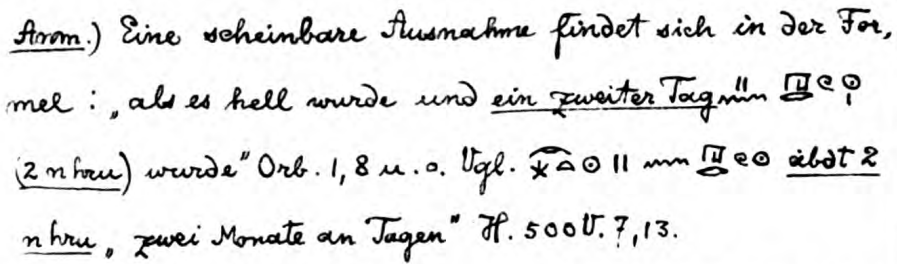 Anm.) Eine scheinbare Ausnahme findet sich in der For,
mel : „als es hell wurde und ein zweiter Tag 𓏻𓈖 𓉔𓂋𓏲𓇳𓏤
(2 n hru) wurde" Orb. 1, 8 u. o. Vgl. 𓇹𓇼𓏏𓇳 𓏻 𓈖 𓉔𓂋𓏲𓇳 ȧbdt 2
n hru „zwei Monate an Tagen" H. 500 V. 7, 13.